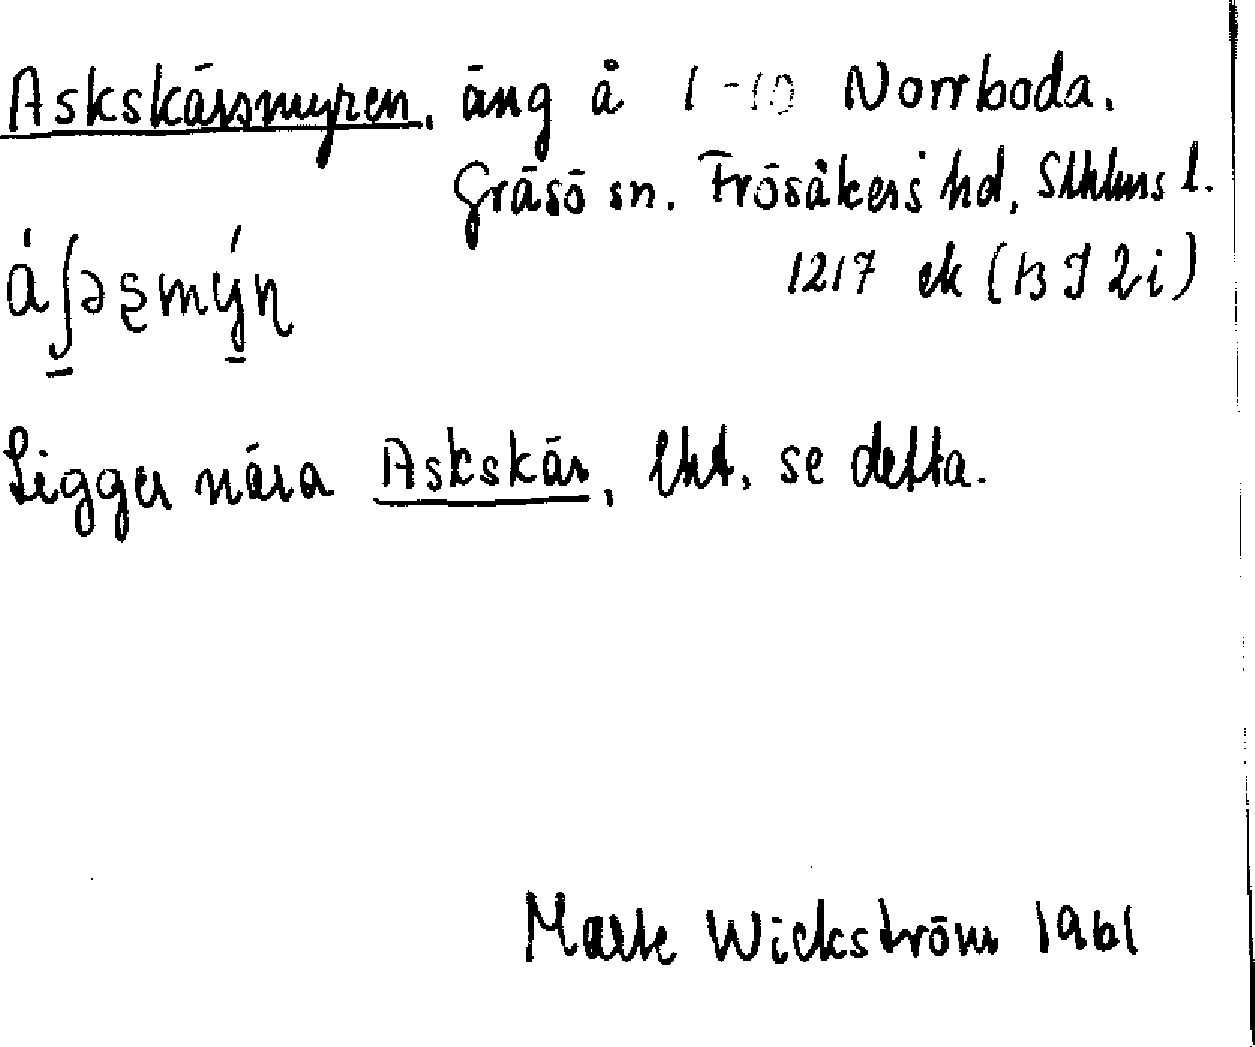 Askskärsmyren, äng å 1-10 Norrboda.
Gräsö sn. Frösåkers hd, Sthlms l.
á∫ə̀s̨mýn̨ 1217 ek (13 I 2i)
Ligger nära Askskär, lht, se detta.
Malte Wickström 1961